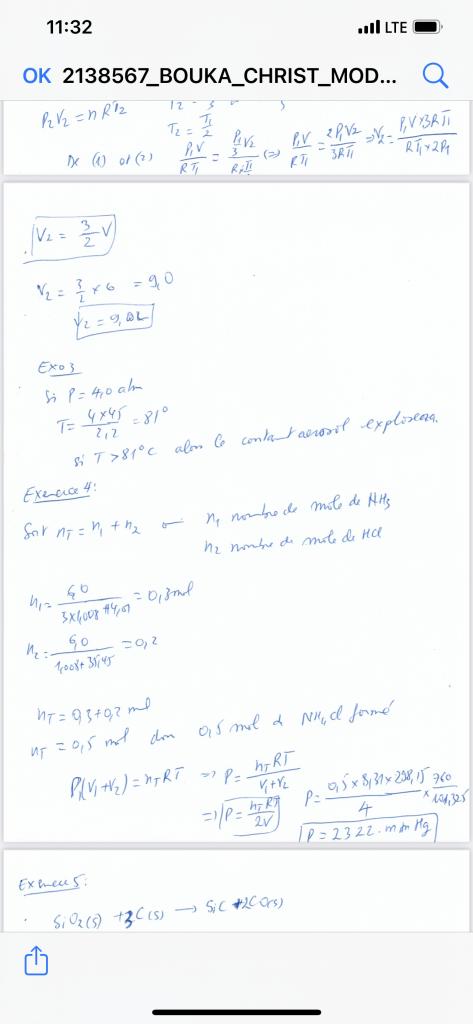 11:32 LTE
OK 2138567_BOUKA_CHRIST_MOD...
P₂V₂ = nRT₂
T₂ = T₁/2
De (1) et (2) P₁V/RT₁ = 2P₁V₂/3RT₁ ⇒ V₂ = P₁V×3RT₁/RT₁×2P₁
V₂ = 3/2 V
V₂ = 3/2 × 6 = 9,0
V₂ = 9,0L
Exo3
Si P = 4,0 atm
T = 4×45/2,2 = 81°
si T > 81°C alors le contant aerosol explosera.
Exercice 4:
Soit nT = n₁ + n₂ n₁ nombre de mole de NH₃
n₂ nombre de mole de HCl
n₁ = 6,0/3×1,008+14,01 = 0,3 mol
n₂ = 6,0/1,008+35,45 = 0,2
nT = 0,3+0,2 mol
nT = 0,5 mol don 0,5 mol de NH₄Cl formé
P(V₁+V₂) = nTRT ⇒ P = nTRT/V₁+V₂
⇒ P = nTRT/2V
P = 0,5×8,31×298,15/4 × 760/101,325
P = 2322. mmHg
Exercice 5:
SiO₂(s) + 3C(s) → SiC + 2CO(s)